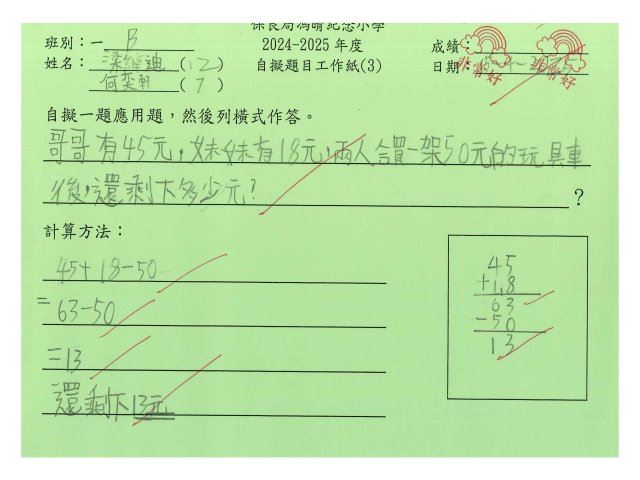 保良局馮晴紀念小學
班別：一 B
2024-2025 年度
成績：
姓名： 梁綽迪 (12)
自擬題目工作紙(3)
日期：
何奕軒 (7)
非常好 非常好
自擬一題應用題，然後列橫式作答。
哥哥有45元，妹妹有18元，兩人合買一架50元的玩具車
後，還剩下多少元？ ？
計算方法：
45+18-50
= 63-50
=13
還剩下13元
45
+18
63
-50
13